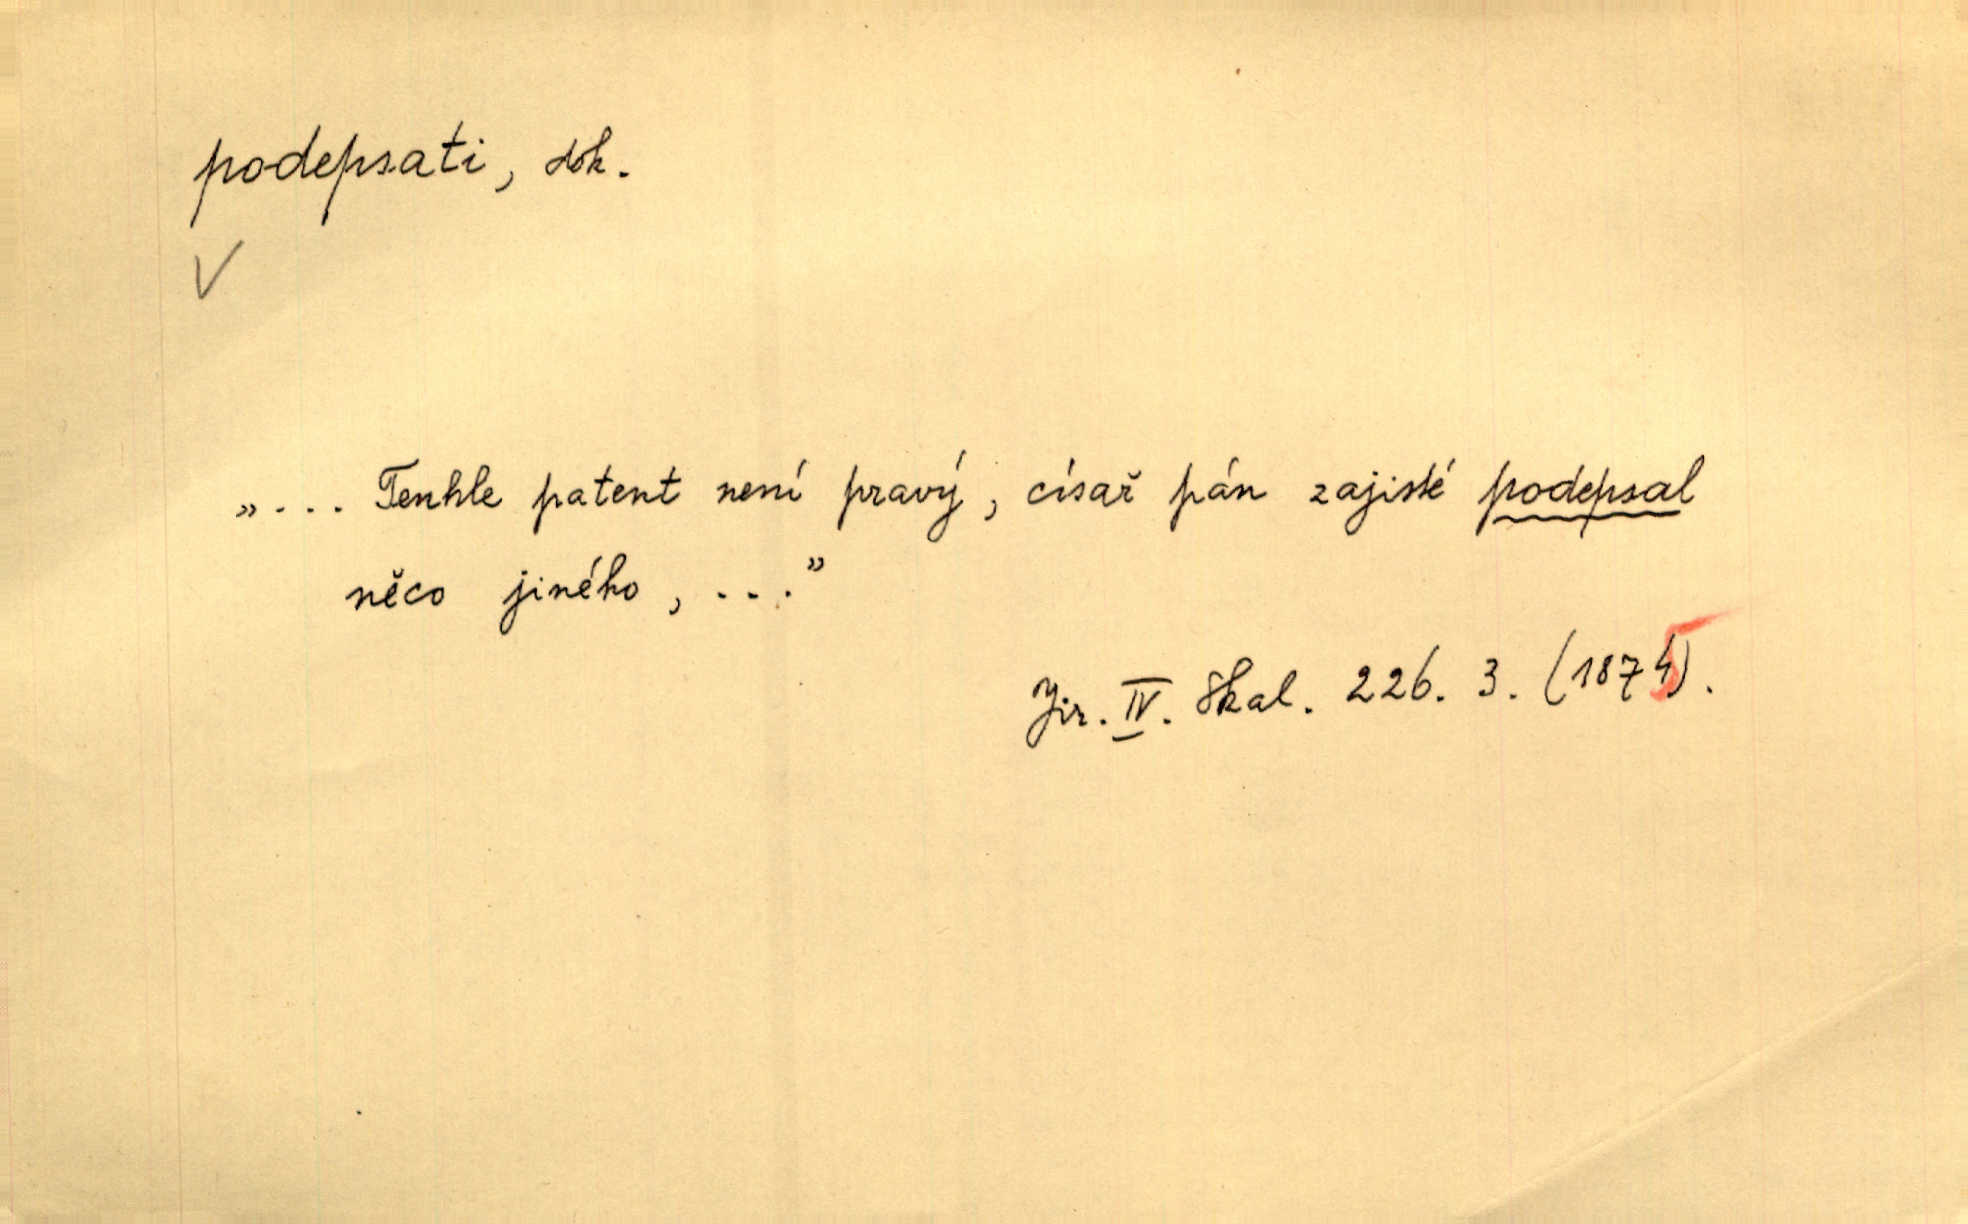 podepsati, dok.
V
„... Tenhle patent není pravý, císař pán zajisté podepsal
něco jiného, ...”
Jir. IV. Skal. 226. 3. (1875).